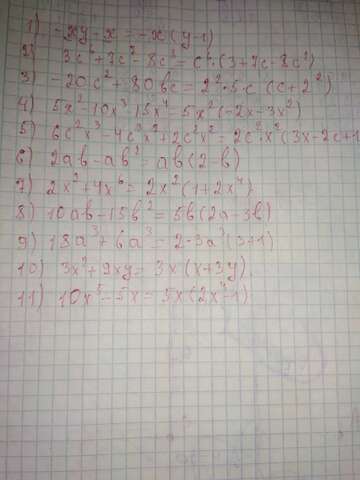 1) -xy-x=-x(y-1)
2) 3c²+7c³-8c⁴=c²(3+7c-8c²)
3) -20c²+80bc=2²·5c(c+2²)
4) 5x²-10x³-15x⁴=5x²(-2x-3x²)
5) 6c²x³-4c³x²+2c²x²=2c²x²(3x-2c+1
6) 2ab-ab²=ab(2-b)
7) 2x²+4x⁶=2x²(1+2x⁴)
8) 10ab-15b²=5b(2a-3b)
9) 18a³+6a³=2·3a³(3+1)
10) 3x²+9xy=3x(x+3y)
11) 10x⁵-5x=5x(2x⁴-1)